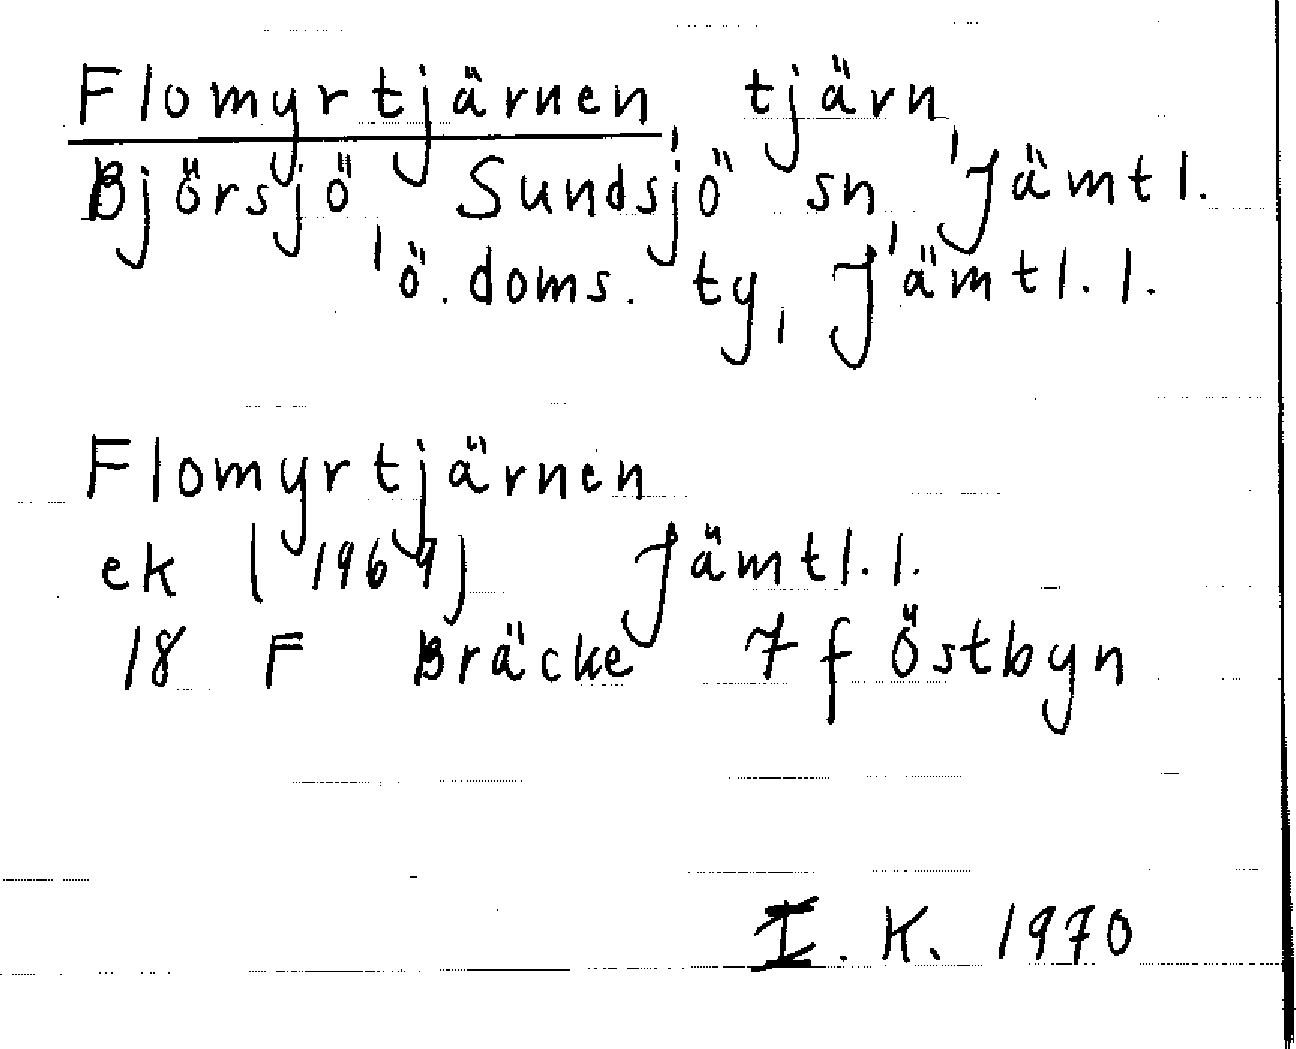 Flomyrtjärnen, tjärn,
Björsjö, Sundsjö sn, Jämtl.
ö. doms. ty, Jämtl. l.
Flomyrtjärnen
ek (1969) Jämtl. l.
18 F Bräcke 7 f Östbyn
I. K. 1970